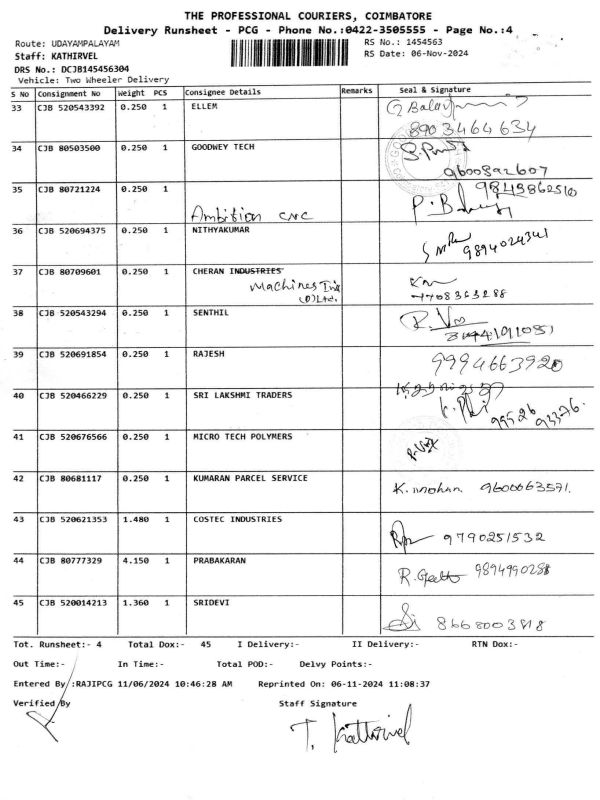 THE PROFESSIONAL COURIERS, COIMBATORE
Delivery Runsheet - PCG - Phone No.:0422-3505555 - Page No.:4
Route: UDAYAMPALAYAM RS No.: 1454563
Staff: KATHIRVEL RS Date: 06-Nov-2024
DRS No.: DCJB145456304
Vehicle: Two Wheeler Delivery
S No Consignment No Weight PCS Consignee Details Remarks Seal & Signature
33 CJB 520543392 0.250 1 ELLEM
8903464634
34 CJB 80503500 0.250 1 GOODWEY TECH
9600892607
35 CJB 80721224 0.250 1
Ambition CNC
36 CJB 520694375 0.250 1 NITHYAKUMAR
9894024341
37 CJB 80709601 0.250 1 CHERAN INDUSTRIES
Machines
38 CJB 520543294 0.250 1 SENTHIL
39 CJB 520691854 0.250 1 RAJESH 9994663920
40 CJB 520466229 0.250 1 SRI LAKSHMI TRADERS
99526 93376.
41 CJB 520676566 0.250 1 MICRO TECH POLYMERS
42 CJB 80681117 0.250 1 KUMARAN PARCEL SERVICE
K. mohan 9600063571.
43 CJB 520621353 1.480 1 COSTEC INDUSTRIES
9790251532
44 CJB 80777329 4.150 1 PRABAKARAN
45 CJB 520014213 1.360 1 SRIDEVI
8668003818
Tot. Runsheet:- 4 Total Dox:- 45 I Delivery:- II Delivery:- RTN Dox:-
Out Time:- In Time:- Total POD:- Delvy Points:-
Entered By :RAJIPCG 11/06/2024 10:46:28 AM Reprinted On: 06-11-2024 11:08:37
Verified By Staff Signature
T. Kathirvel